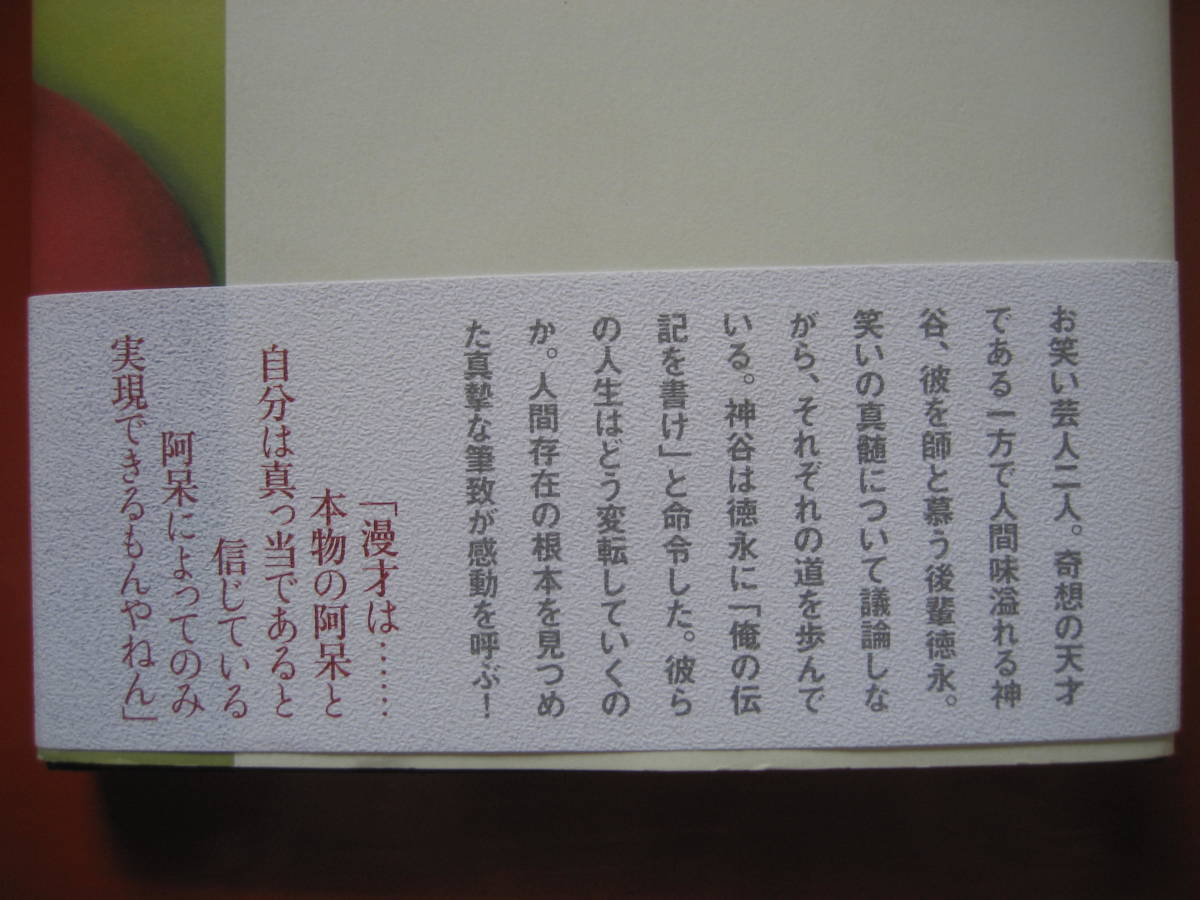 お笑い芸人二人。奇想の天才
である一方で人間味溢れる神
谷、彼を師と慕う後輩徳永。
笑いの真髄について議論しな
がら、それぞれの道を歩んで
いる。神谷は徳永に「俺の伝
記を書け」と命令した。彼ら
の人生はどう変転していくの
か。人間存在の根本を見つめ
た真摯な筆致が感動を呼ぶ！
「漫才は……
本物の阿呆と
自分は真っ当であると
信じている
阿呆によってのみ
実現できるもんやねん」